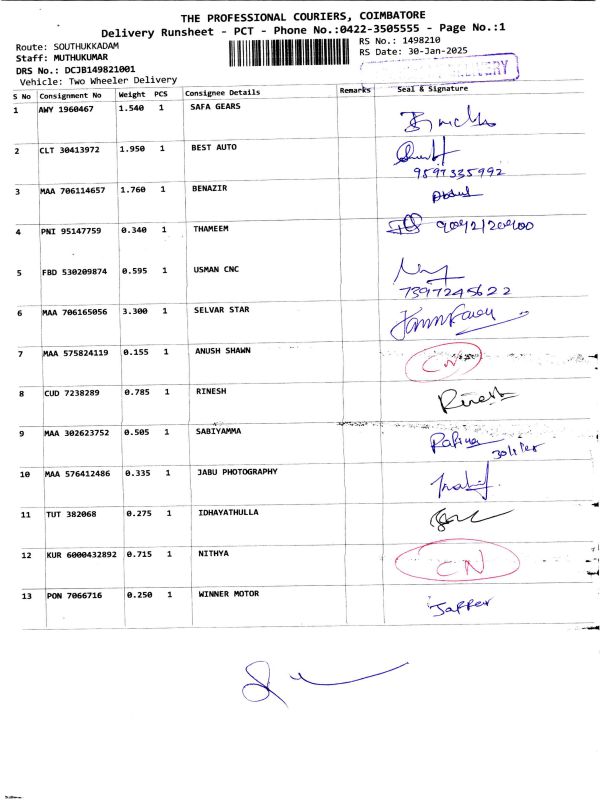 THE PROFESSIONAL COURIERS, COIMBATORE
Delivery Runsheet - PCT - Phone No.:0422-3505555 - Page No.:1
Route: SOUTHUKKADAM RS No.: 1498210
Staff: MUTHUKUMAR RS Date: 30-Jan-2025
DRS No.: DCJB149821001
Vehicle: Two Wheeler Delivery DELIVERY
S No Consignment No Weight PCS Consignee Details Remarks Seal & Signature
1 AWY 1960467 1.540 1 SAFA GEARS
2 CLT 30413972 1.950 1 BEST AUTO
9597335992
3 MAA 706114657 1.760 1 BENAZIR
4 PNI 95147759 0.340 1 THAMEEM
5 FBD 530209874 0.595 1 USMAN CNC
7397245622
6 MAA 706165056 3.300 1 SELVAR STAR
7 MAA 575824119 0.155 1 ANUSH SHAWN CN
8 CUD 7238289 0.785 1 RINESH Rinesh
9 MAA 302623752 0.505 1 SABIYAMMA
10 MAA 576412486 0.335 1 JABU PHOTOGRAPHY
11 TUT 382068 0.275 1 IDHAYATHULLA
12 KUR 6000432892 0.715 1 NITHYA CN
13 PON 7066716 0.250 1 WINNER MOTOR Jaffer